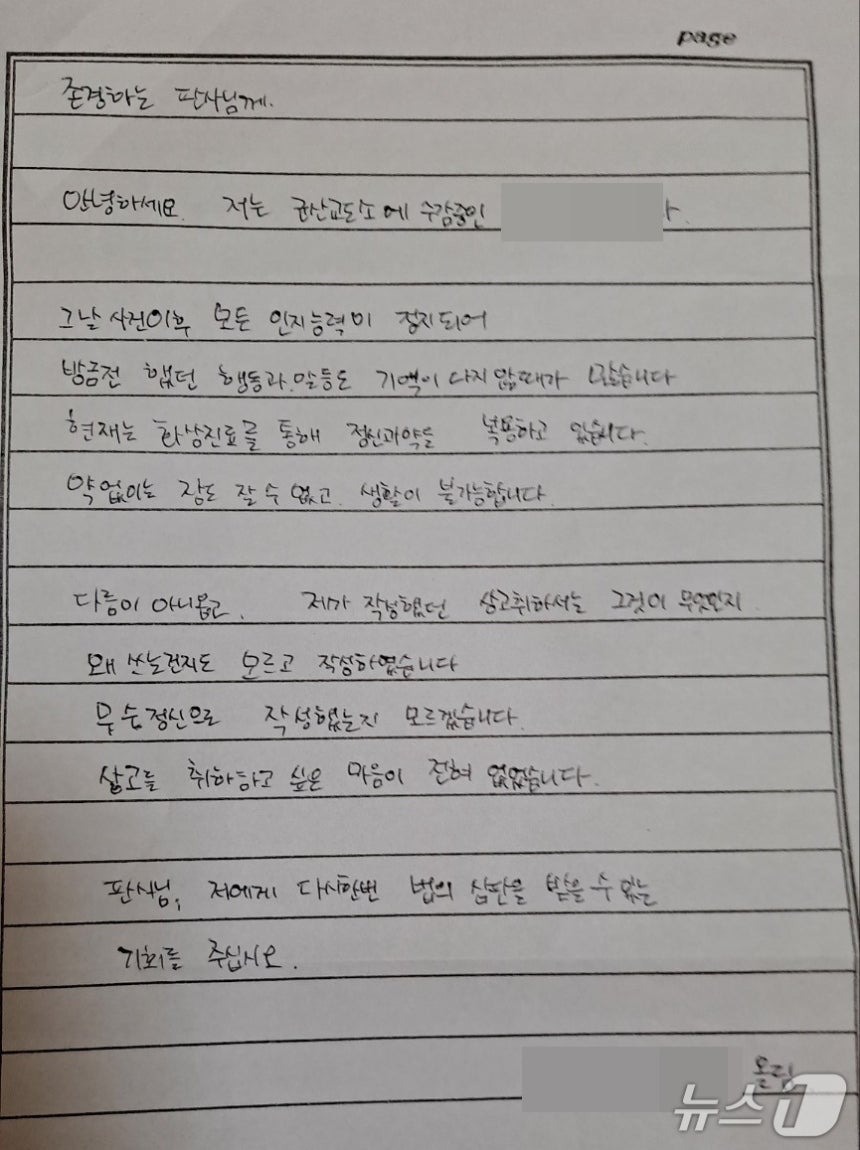 page
존경하는 판사님께.
안녕하세요. 저는 군산교도소에 수감중인
그날 사건이후 모든 인지능력이 정지되어
방금전 했던 행동과.말등도 기억이 나지 않을때가 많습니다
현재는 화상진료를 통해 정신과약을 복용하고 있습니다.
약 없이는 잠도 잘 수 없고. 생활이 불가능합니다.
다름이 아니옵고. 제가 작성했던 상고취하서는 그것이 무엇인지.
왜 쓰는건지도 모르고 작성하였습니다
무슨정신으로 작성했는지 모르겠습니다.
상고를 취하하고 싶은 마음이 전혀 없었습니다.
판사님, 저에게 다시한번 법의 심판을 받을 수 있는
기회를 주십시오.
올림
뉴스1